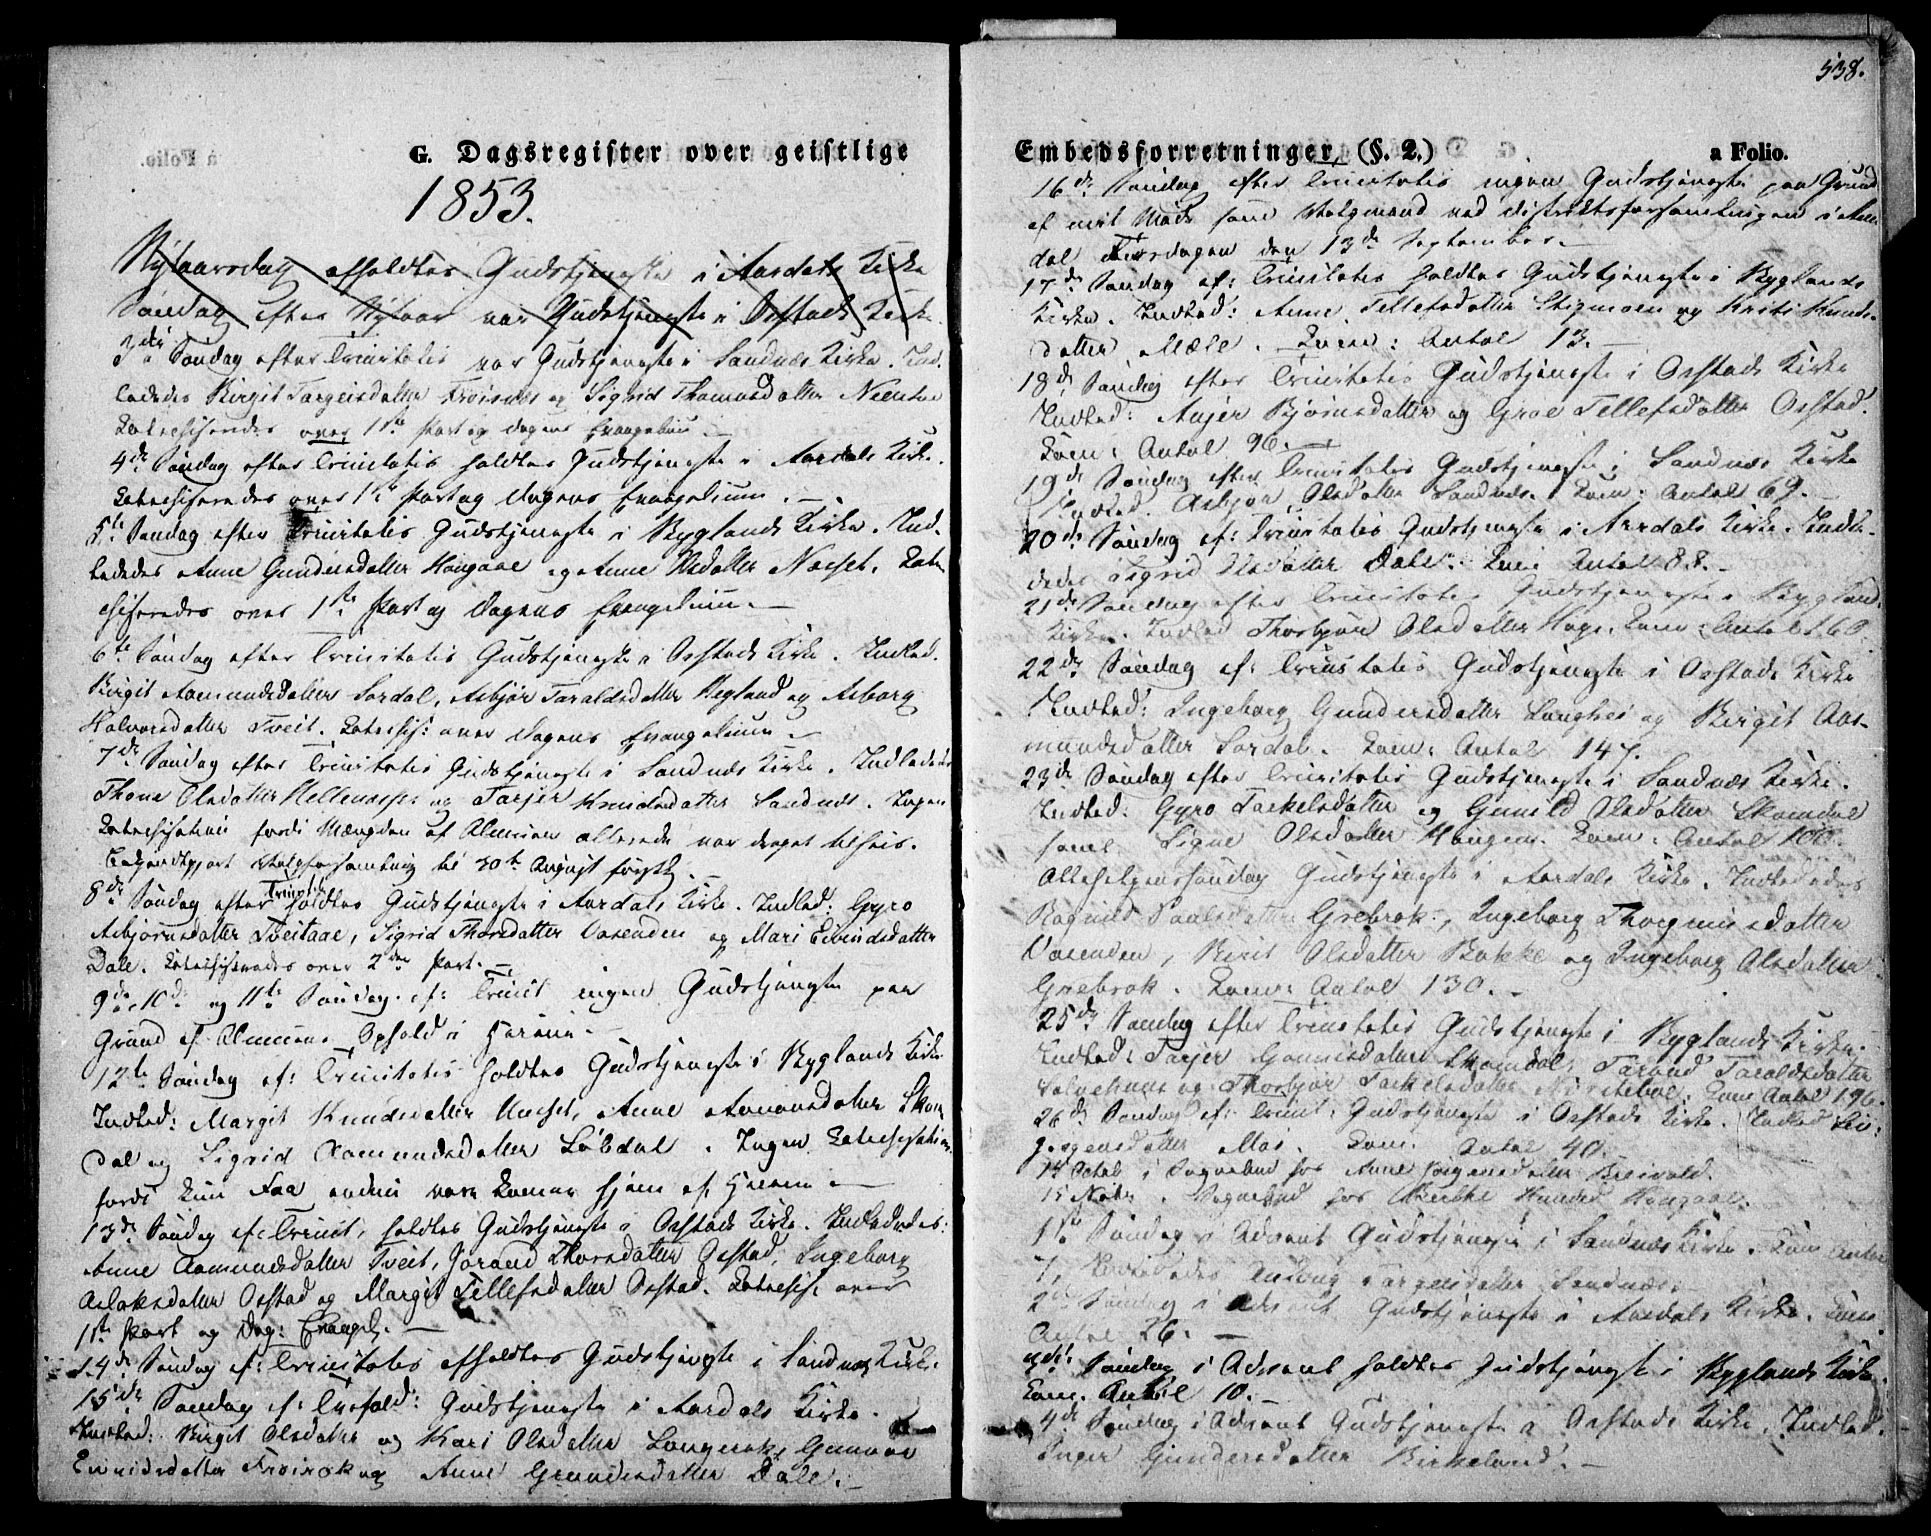 G. Dagsregister over geistlige
1853.
Nytaarsdag afholdtes Gudstjeneste i Aardals Kirke
Søndag efter Nytaar var Gudstjeneste i Østads Kirke
3die Søndag efter Trinitatis var Gudstjeneste i Sandnæs Kirke. Ind-
lededes Birgit Targeirsdatter Frøisnæs og Sigrid Thomasdatter
Catechiseredes over 1ste Part og Dagens Evangelium
4de Søndag efter Trinitatis holdtes Gudstjeneste i Aardals Kirke.
Catechiseredes over 1ste Part og Dagens Evangelium. –
5te Søndag efter Trinitatis Gudstjeneste i Byglands Kirke. Ind-
lededes Anne Gundersdatter Haugaae og Anne Olsdatter Næset. Cate-
chiseredes over 1ste Part og Dagens Evangelium. –
6te Søndag efter Trinitatis Gudstjeneste i Østads Kirke. Indled.
Birgit Aamundsdatter Sordal, Asbjør Taraldsdatter Hegland og Asborg
Halvorsdatter Tveit. Catechis: over Dagens Evangelium –
7de Søndag efter Trinitatis Gudstjeneste i Sandnæs Kirke. Indlededes
Thone Olsdatter og Tarjer Knudsdatter Sandnæs. Ingen
Catechisation fordi Mængden af Almuen allerede var draget tilheis.
Bekjendtgjort Valgforsamling til 30te August
8de Søndag efter Trinitatis holdtes Gudstjeneste i Aardals Kirke. Indled: Gyro
Asbjørnsdatter Tveitaae, Sigrid Thorsdatter Oasenden og Mari Eivindsdatter
Dale. Catechiseredes over 2den Part. –
9de, 10de og 11te Søndag ef: Trinit ingen Gudstjeneste paa
Grund af Almuens Ophold i Heierne –
12te Søndag ef: Trinitatis holdtes Gudstjeneste i Byglands Kirke
Indled: Margit Knudsdatter Næset, Anne Aanonsdatter Skom
dal og Sigrid Aamundsdatter Løbdal. Ingen Catechisation
fordi kun Faa endnu vare komne hjem af Heierne –
13de Søndag ef: Trinit. holdtes Gudstjeneste i Østads Kirke. Indlededes:
Anne Aamundsdatter Tveit, Jorand Thorsdatter Østad, Ingeborg
Aslaksdatter Østad og Margit Tellefsdatter Østad. Catechis: over
1ste Part og Dag: Evangel. –
14de Søndag ef: Trinitatis afholdtes Gudstjeneste i Sandnæs Kirke
15de Søndag ef: Trefold: Gudstjeneste i Aardals Kirke.
Indled: Birgit Olsdatter og Kari Olsdatter Langerak, Gunvor
Eivindsdatter Frøirok og Anne Gundersdatter Dale. –
538.
Embedsforretninger, (§. 2.)
a Folio.
16de Søndag efter Trinitatis ingen Gudstjeneste paa Grund
af mit Møde som Valgmand ved Distriktsforsamlingen i Aren
dal Tirsdagen den 13de September. –
17de Søndag ef: Trinitatis holdtes Gudstjeneste i Byglands
Kirke. Indled: Anne Tellefsdatter Stigmoen og Kristi Knuds-
datter Mæle. Com: Antal 13. –
18de Søndag efter Trinitatis Gudstjeneste i Østads Kirke
Indled: Anjer Bjørnsdatter og Groe Tellefsdatter Østad.
Com: Antal 96. –
19de Søndag efter Trinitatis Gudstjeneste i Sandnæs Kirke
Indled. Asbjør Olsdatter Sandnæs. Com: Antal 69. –
20de Søndag ef: Trinitatis Gudstjeneste i Aardals Kirke. Indle-
dedes Sigrid Olsdatter Dale. Com: Antal 88. –
21de Søndag efter Trinitatis Gudstjeneste i Bygland
Kirke. Indled Thorbjør Olsdatter Hage. Com: Antal 160.
22de Søndag ef: Trinitatis Gudstjeneste i Østads Kirke
Indled: Ingeborg Gundersdatter Langhei og Birgit Aas-
mundsdatter Sordal. Com: Antal 147.
23de Søndag efter Trinitatis Gudstjeneste i Sandnæs Kirke.
Indled: Gyro Tarkelsdatter og Gunild Olsdatter Skomdal
samt Signe Olsdatter Haugen. Com: Antal 100.
Allehelgenssøndag Gudstjeneste i Aardals Kirke. Indlededes
Ragnild Paalsdatter Grebrok, Ingeborg Thorgrimsdatter
Oasenden, Berit Olsdatter Bakke og Ingeborg Olsdatter
Grebrok. Com: Antal 130. –
25de Søndag efter Trinitatis Gudstjeneste i Byglands Kirke.
Indled: Tarjer Gunnersdatter Skomdal, Tarand Taraldsdatter
og Thorbjør Tarkelsdatter Com: Antal 196.
26de Søndag ef: Trinit: Gudstjeneste i Østads Kirke. Indled Liv:
Jørgensdatter Moi. Com. Antal 40.
14 Octob i Sognebud hos Anne Jørgensdatter Breivold.
15 Novbr. Sognebud hos Haugaae.
1ste Søndag i Advent Gudstjeneste i Sandnæs Kirke. Com Antal
7, Indlededes Targeirsdatter Sandnæs.
2den Søndag i Advent Gudstjeneste i Aardals Kirke. Com.
Antal 26. –
3die Søndag i Advent holdtes Gudstjeneste i Byglands Kirke
Com. Antal 10. –
4de Søndag i Advent Gudstjeneste i Østads Kirke. Indled.
Inger Gundersdatter Birkeland. –